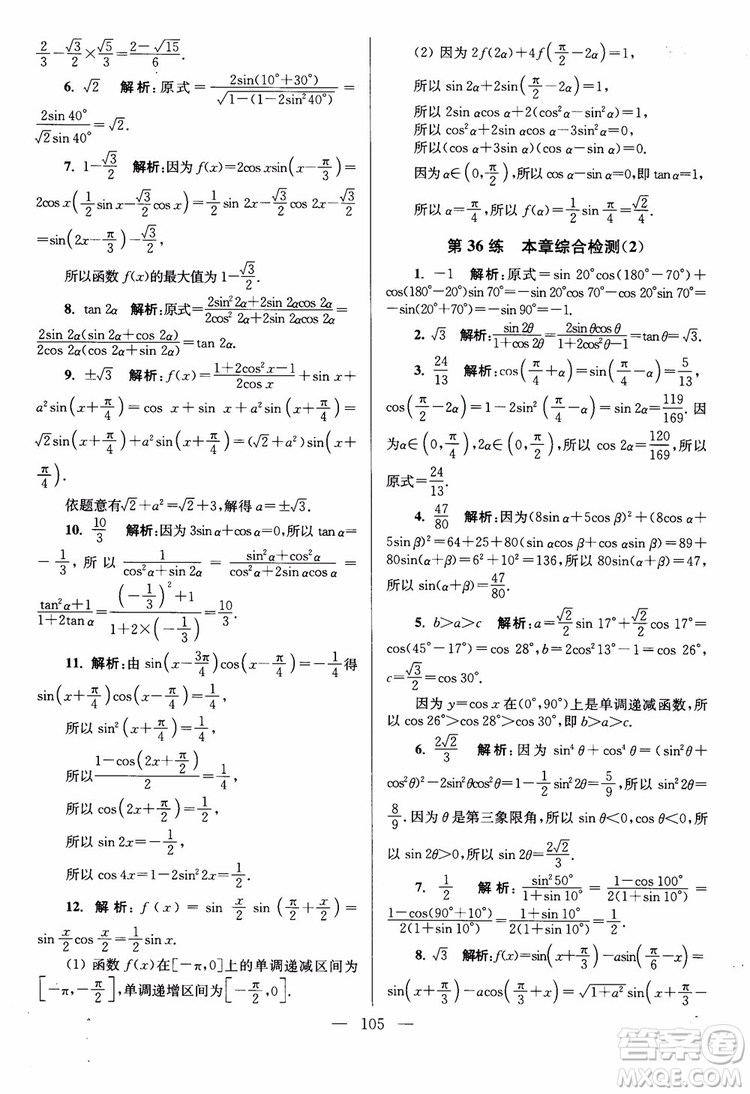 2/3 − √3/2 × √5/3 = (2−√15)/6.
6. √2 解析:原式 = 2sin(10°+30°)/√(1−(1−2sin²40°)) =
2sin 40°/(√2sin 40°) = √2.
7. 1−√3/2 解析:因为 f(x)=2cos xsin(x−π/3)=
2cos x(1/2 sin x−√3/2 cos x)=sin xcos x−√3cos²x=
sin(2x−π/3)−√3/2.
所以函数 f(x)的最大值为 1−√3/2.
8. tan 2α 解析:原式=(2sin²2α+2sin 2αcos 2α)/(2cos²2α+2sin 2αcos 2α)=
2sin 2α(sin 2α+cos 2α)/(2cos 2α(sin 2α+cos 2α))=tan 2α.
9. ±√3 解析:f(x)=(1+2cos²x−1)/(2cos x)+sin x+
a²sin(x+π/4)=cos x+sin x+a²sin(x+π/4)=
√2sin(x+π/4)+a²sin(x+π/4)=(√2+a²)sin(x+
π/4).
依题意有√2+a²=√2+3,解得 a=±√3.
10. 10/3 解析:因为 3sin α+cos α=0,所以 tan α=
−1/3,所以 1/(cos²α+sin 2α)=(sin²α+cos²α)/(cos²α+2sin αcos α)=
(tan²α+1)/(1+2tan α)=((−1/3)²+1)/(1+2×(−1/3))=10/3.
11. 解析:由 sin(x−3π/4)cos(x−π/4)=−1/4得
sin(x+π/4)cos(x−π/4)=1/4,
所以 sin²(x+π/4)=1/4,
所以(1−cos(2x+π/2))/2=1/4,
所以 cos(2x+π/2)=1/2,
所以 sin 2x=−1/2,
所以 cos 4x=1−2sin²2x=1/2.
12. 解析:f(x)=sin x/2 sin(π/2+x/2)=
sin x/2 cos x/2=1/2 sin x.
(1) 函数 f(x)在[−π,0]上的单调递减区间为
[−π,−π/2],单调递增区间为[−π/2,0].
(2) 因为 2f(2α)+4f(π/2−2α)=1,
所以 sin 2α+2sin(π/2−2α)=1,
所以 2sin αcos α+2(cos²α−sin²α)=1,
所以 cos²α+2sin αcos α−3sin²α=0,
所以(cos α+3sin α)(cos α−sin α)=0.
因为 α∈(0,π/2),所以 cos α−sin α=0,即 tan α=1,
所以 α=π/4.
第 36 练 本章综合检测(2)
1. −1 解析:原式=sin 20°cos(180°−70°)+
cos(180°−20°)sin 70°=−sin 20°cos 70°−
cos 20°sin 70°=−sin 90°=−1.
2. √3 解析:sin 2θ/(1+cos 2θ)=2sin θcos θ/(2cos²θ)=tan θ=√3.
3. 24/13 解析:cos(π/4+α)=sin(π/4−α)=5/13,
cos(π/2−2α)=1−2sin²(π/4−α)=sin 2α=119/169. 因
为α∈(0,π/4),2α∈(0,π/2),所以 cos 2α=120/169,
原式=24/13.
4. 47/80 解析:因为(8sin α+5cos β)²+(8cos α+
5sin β)²=64+25+80(sin αcos β+cos αsin β)=89+
80sin(α+β)=6²+10²=136,所以 80sin(α+β)=47,
所以 sin(α+β)=47/80.
5. b>a>c 解析:a=√2/2 sin 17°+√2/2 cos 17°=
cos(45°−17°)=cos 28°,b=2cos²13°−1=cos 26°,
c=√3/2=cos 30°.
因为 y=cos x 在(0°,90°)上是单调递减函数,所
以 cos 26°>cos 28°>cos 30°,即 b>a>c.
6. 2√2/3 解析:因为 sin⁴θ+cos⁴θ=(sin²θ+
cos²θ)²−2sin²θcos²θ=1−1/2 sin²2θ=5/9,所以 sin²2θ=
8/9. 因为 θ 是第三象限角,所以 sin θ<0,cos θ<0,
所以 sin 2θ>0,所以 sin 2θ=2√2/3.
7. 1/2 解析:sin²50°/(1+sin 10°)=(1−cos 100°)/(2(1+sin 10°))=
(1−cos(90°+10°))/(2(1+sin 10°))=(1+sin 10°)/(2(1+sin 10°))=1/2.
8. √3 解析:f(x)=sin(x+π/3)−asin(x−π/6)=
sin(x+π/3)+acos(π/3+x)=√(1+a²)sin(x+π/3+
— 105 —
答案圈